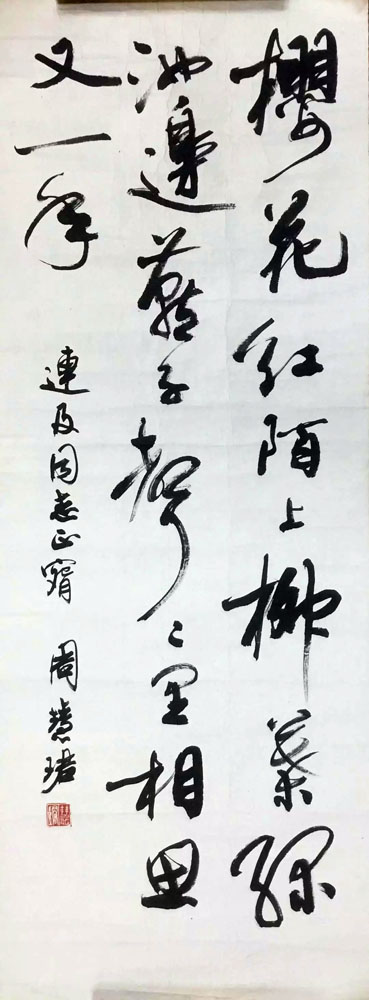 櫻花紅陌上柳葉綠
池邊燕子聲〻裏相思
又一年
連及同志正窮 周慧珺